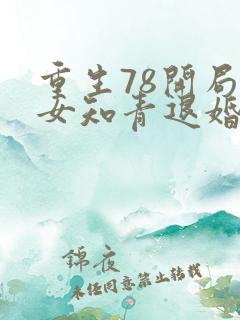 重生78開局
女知青退婚
錦夜
未经同意禁止转载